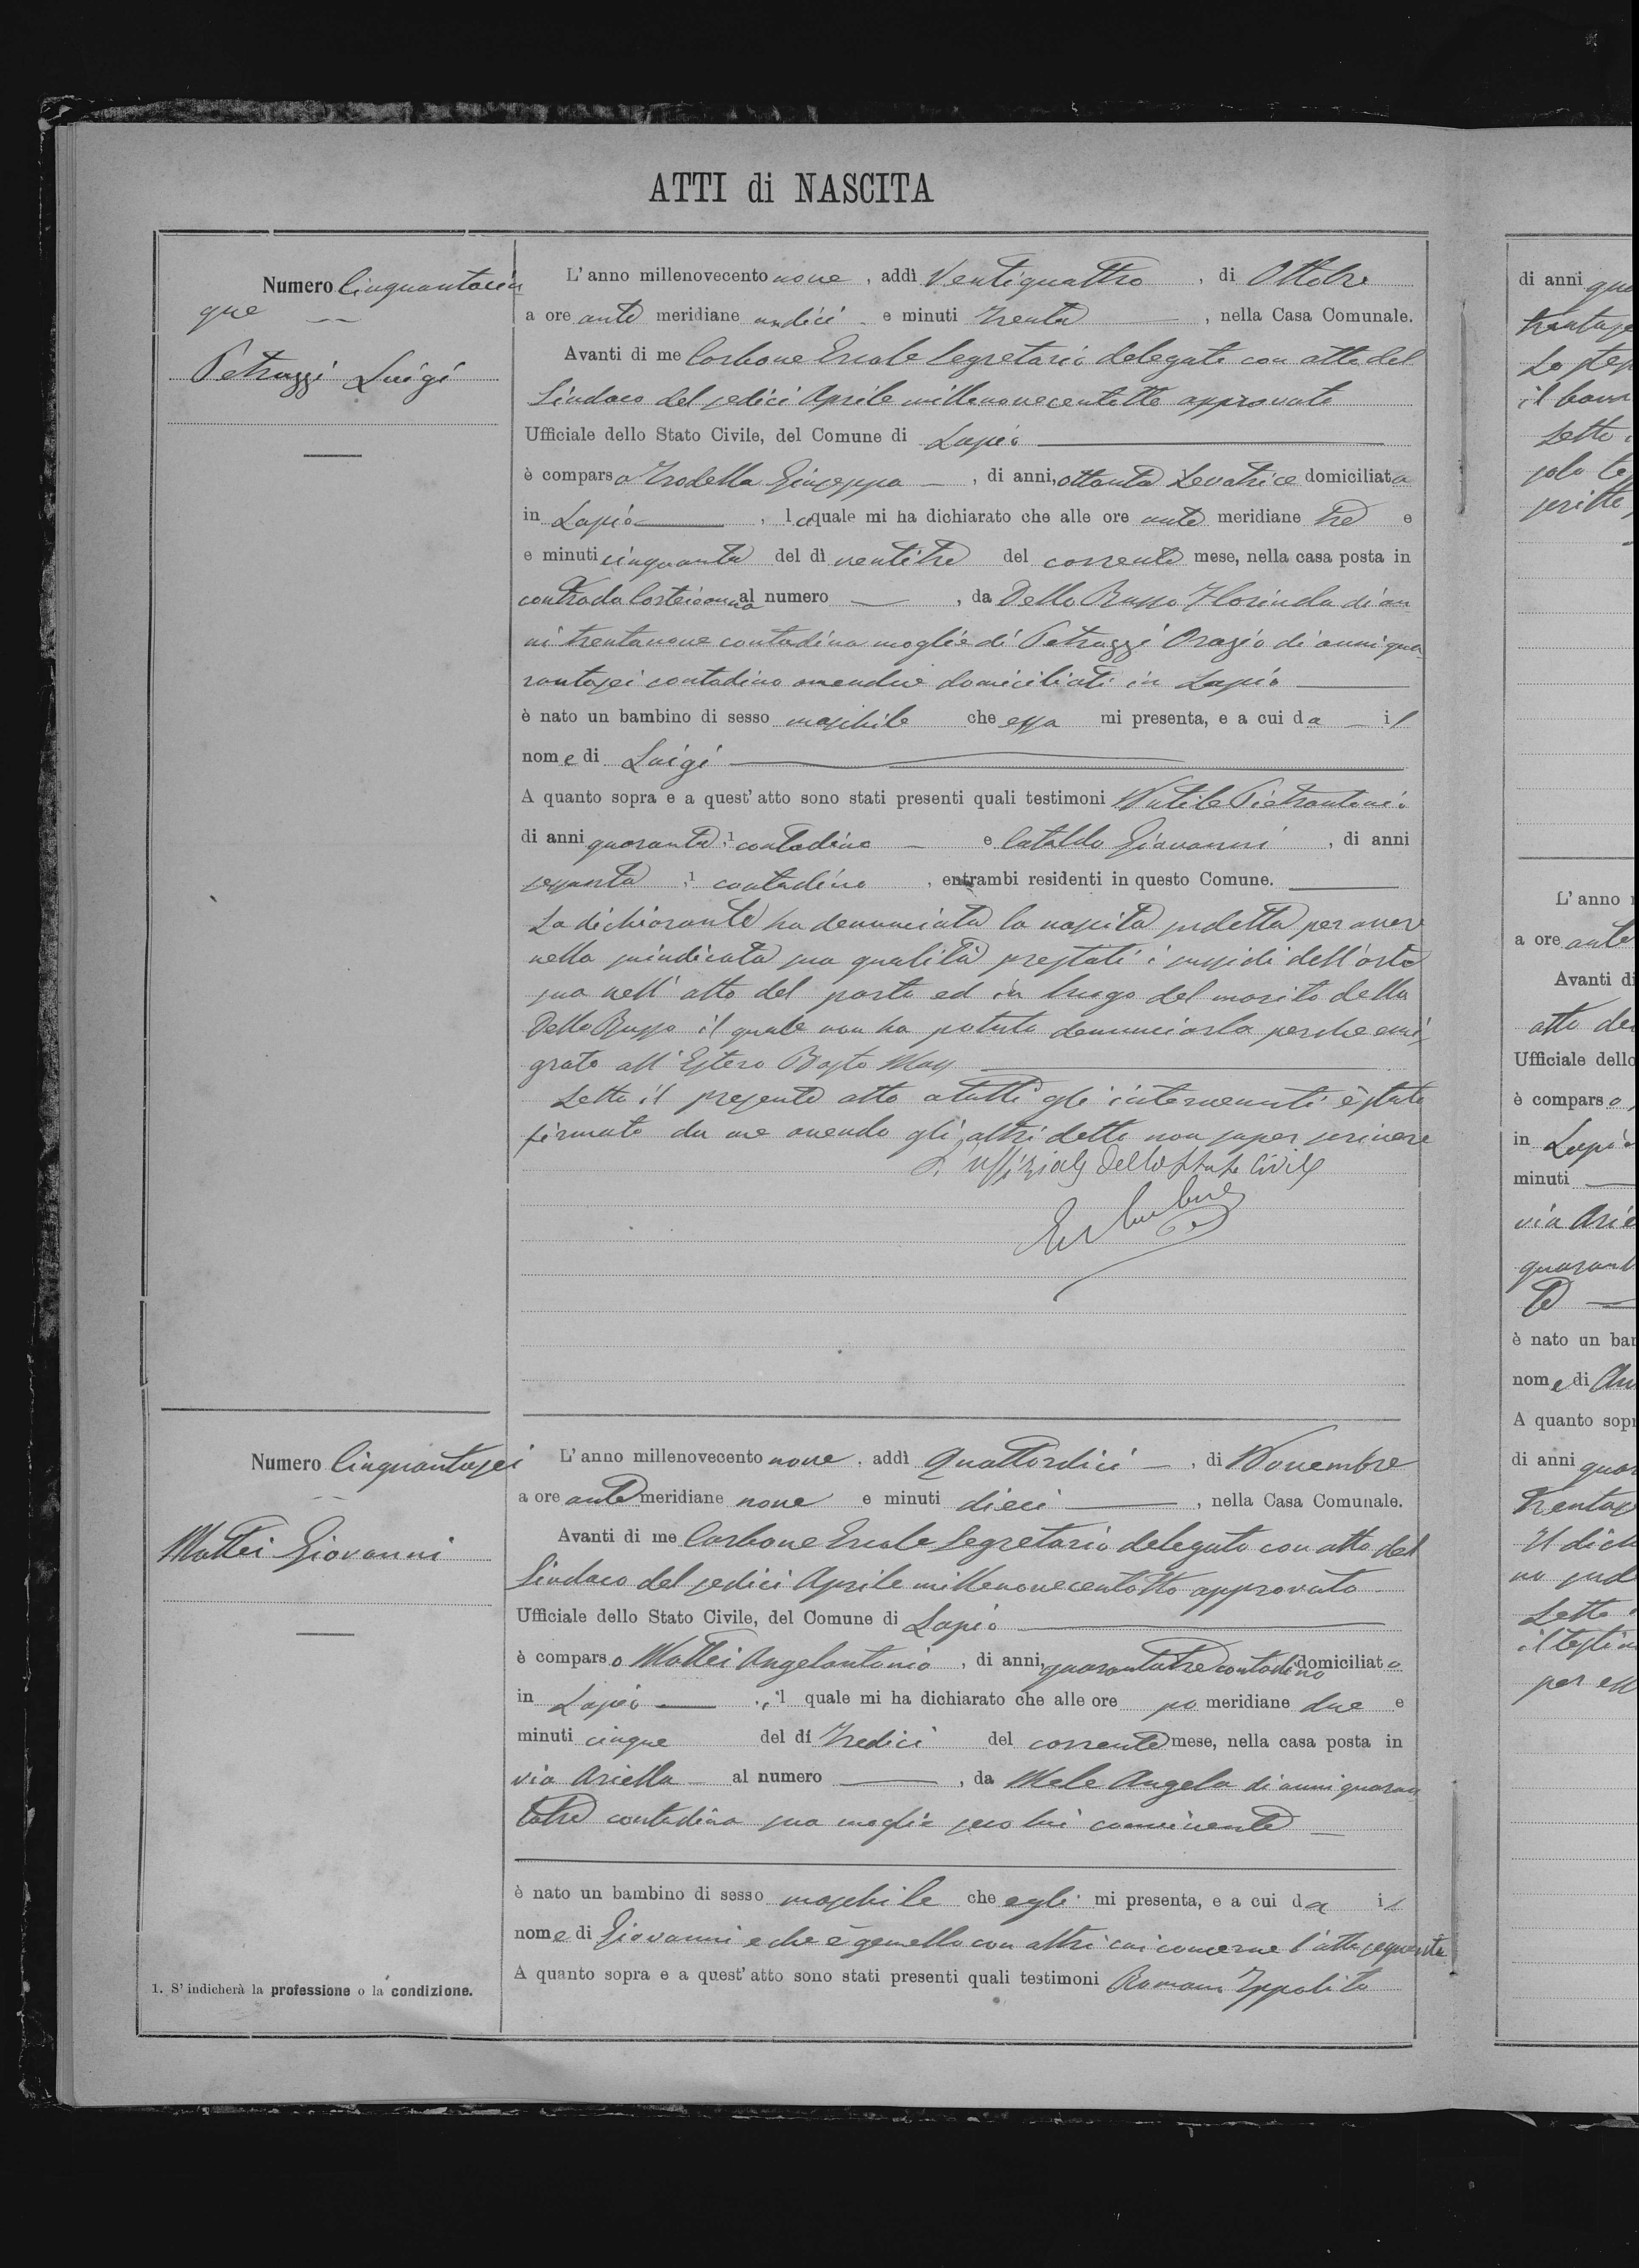 ATTI di NASCITA
Numero Cinquantacin
que
Petruzzi Luigi
L'anno millenovecento nove, addì Ventiquattro, di Ottobre
a ore ante meridiane undici e minuti trenta, nella Casa Comunale.
Avanti di me Carbone Ercole Segretario delegato con atto del
Sindaco del sedici Aprile millenovecentotto approvato
Ufficiale dello Stato Civile, del Comune di Lapio
è comparsa Giuseppa, di anni, ottanta Levatrice domiciliata
in Lapio, la quale mi ha dichiarato che alle ore ante meridiane tre e
e minuti cinquanta del dì ventitre del corrente mese, nella casa posta in
contrada al numero —, da Dello Russo Florinda di an
ni trentanove contadina moglie di Petruzzi Orazio di anni qua
rantasei contadino amendue domiciliati in Lapio
è nato un bambino di sesso maschile che essa mi presenta, e a cui da il
nome di Luigi
A quanto sopra e a quest'atto sono stati presenti quali testimoni Nutile Pietrantonio
di anni quaranta, 1 contadino e Cataldo Giovanni, di anni
sessanta, 1 contadino, entrambi residenti in questo Comune.
La dichiarante ha denunciata la nascita sudetta per aver
nella suindicata sua qualità prestati i sussidi dell'arte
sua nell'atto del parto ed in luogo del marito della
Dello Russo il quale non ha potuto denunciarla perche emi
grato all'Estero Mass
Letto il presente atto a tutti gli intervenuti è stato
firmato da me avendo gli altri detto non saper scrivere
L'uffiziale dello Stato Civile
Numero Cinquantasei
Mattei Giovanni
L'anno millenovecento nove, addì Quattordici, di Novembre
a ore ante meridiane nove e minuti dieci, nella Casa Comunale.
Avanti di me Carbone Ercole Segretario delegato con atto del
Sindaco del sedici Aprile millenovecentotto approvato
Ufficiale dello Stato Civile, del Comune di Lapio
è comparso Mattei Angelantonio, di anni, quarantatre contadino domiciliato
in Lapio, il quale mi ha dichiarato che alle ore po meridiane due e
minuti cinque del dì tredici del corrente mese, nella casa posta in
via Ariella al numero —, da Mele Angela di anni quaran
tatre contadina sua moglie seco lui convivente
è nato un bambino di sesso maschile che egli mi presenta, e a cui da il
nome di Giovanni e che è gemello con altri cui concerne l'atto seguente
A quanto sopra e a quest'atto sono stati presenti quali testimoni Romano Ippolito
1. S'indicherà la professione o la condizione.
di anni
il
L'anno
a ore ante
Avanti di
Ufficiale dello
è comparso
in Lapio
minuti
via
è nato un
nome di
A quanto
di anni
per